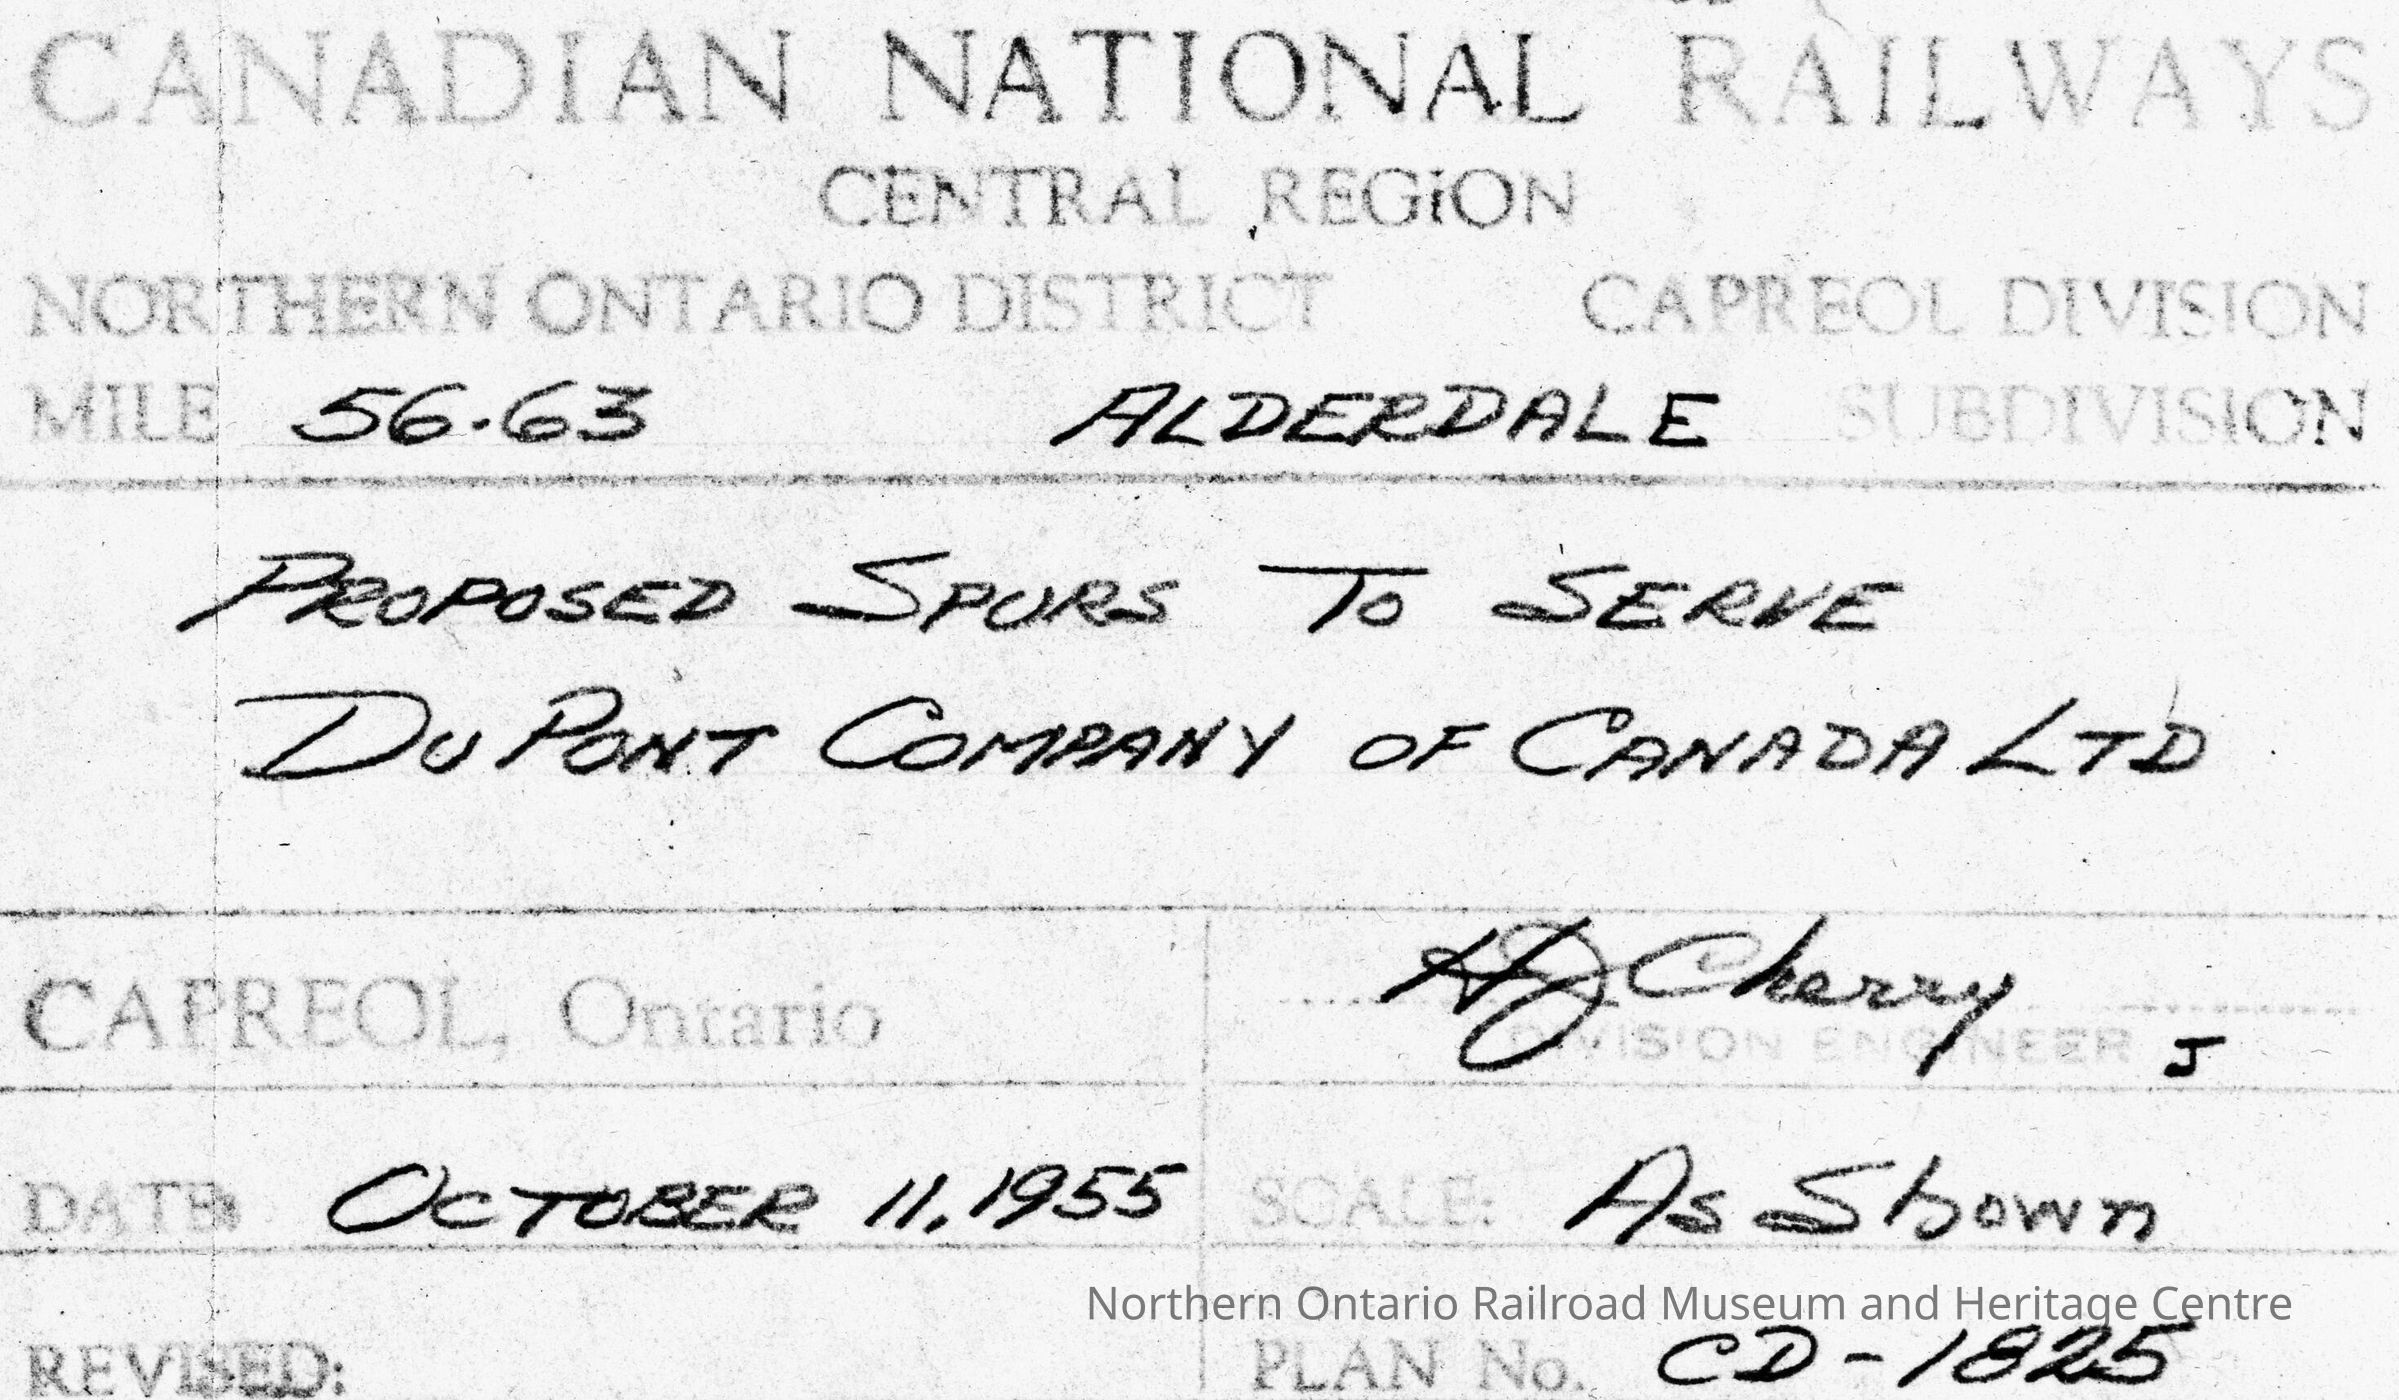 CANADIAN NATIONAL RAILWAYS
CENTRAL REGION
NORTHERN ONTARIO DISTRICT CAPREOL DIVISION
MILE 56.63 ALDERDALE SUBDIVISION
PROPOSED SPURS TO SERVE
DUPONT COMPANY OF CANADA LTD
CAPREOL, Ontario
HJ Cherry
DIVISION ENGINEER J
DATE: OCTOBER 11, 1955 SCALE: As Shown
Northern Ontario Railroad Museum and Heritage Centre
REVISED: PLAN No. CD-1825